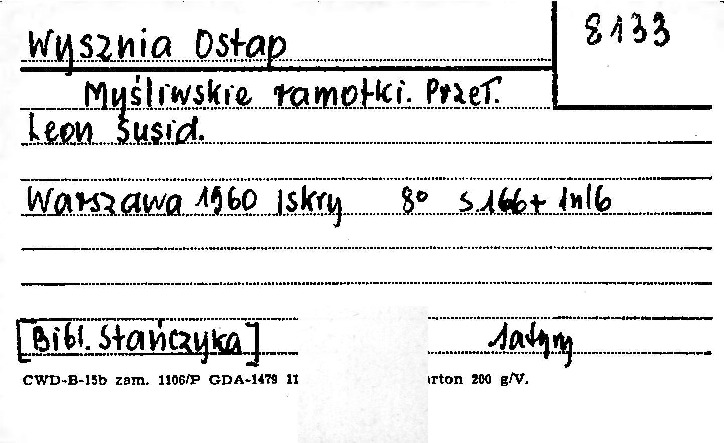 8133
Wysznia Ostap
Myśliwskie ramotki. Przeł.
Leon Susid.
Warszawa 1960 Iskry 8° s.166+ 1nlb
[Bibl. Stańczyka] satyry
CWD-B-15b zam. 1106/P GDA-1479 11 rton 200 g/V.